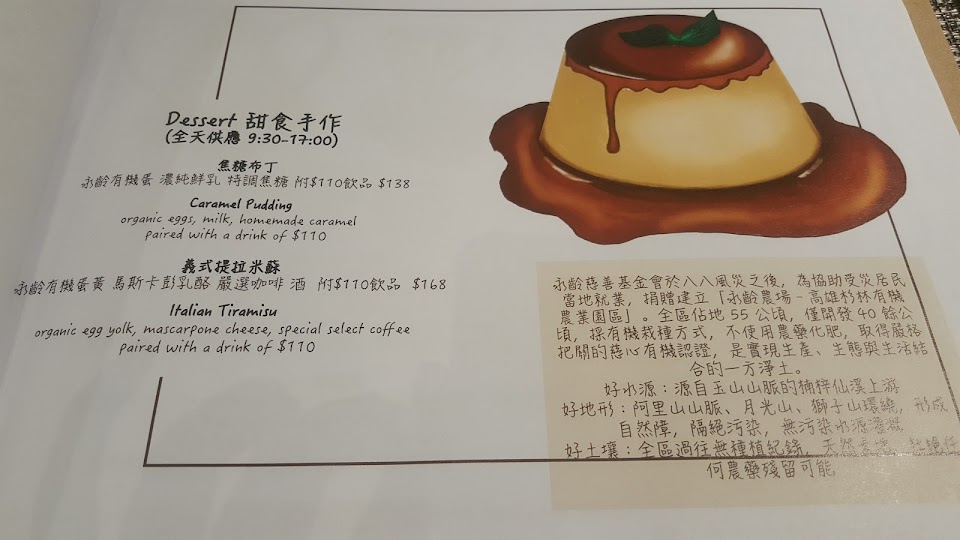 Dessert 甜食手作
(全天供應 9:30-17:00)
焦糖布丁
永齡有機蛋 濃純鮮乳 特調焦糖 附$110飲品 $138
Caramel Pudding
organic eggs, milk, homemade caramel
paired with a drink of $110
義式提拉米蘇
永齡有機蛋黃 馬斯卡彭乳酪 嚴選咖啡 酒 附$110飲品 $168
Italian Tiramisu
organic egg yolk, mascarpone cheese, special select coffee
paired with a drink of $110
永齡慈善基金會於八八風災之後，為協助受災居民
當地就業，捐贈建立「永齡農場－高雄杉林有機
農業園區」。全區佔地 55 公頃，僅開發 40 餘公
頃，採有機栽種方式，不使用農藥化肥，取得嚴格
把關的慈心有機認證，是實現生產、生態與生活結
合的一方淨土。
好水源：源自玉山山脈的楠梓仙溪上游
好地形：阿里山山脈、月光山、獅子山環繞，形成
自然障，隔絕污染，無污染水源灌溉
好土壤：全區過往無種植紀錄，天然
何農藥殘留可能